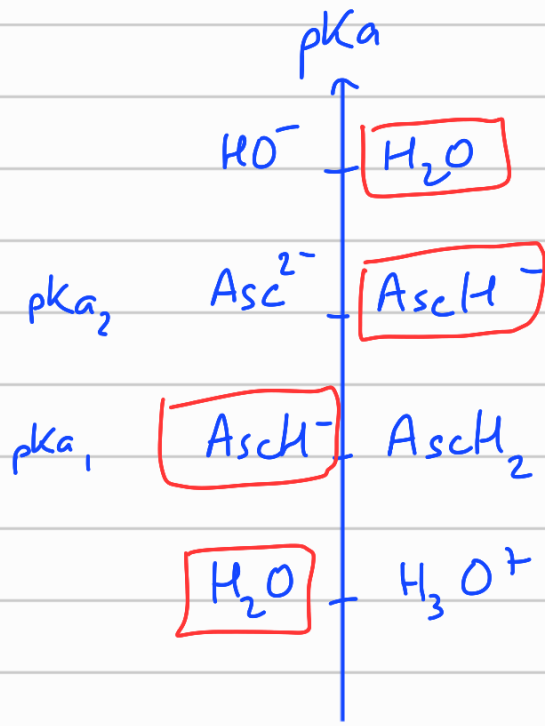 pKa
HO⁻ H₂O
pKa₂ Asc²⁻ AscH⁻
pKa₁ AscH⁻ AscH₂
H₂O H₃O⁺